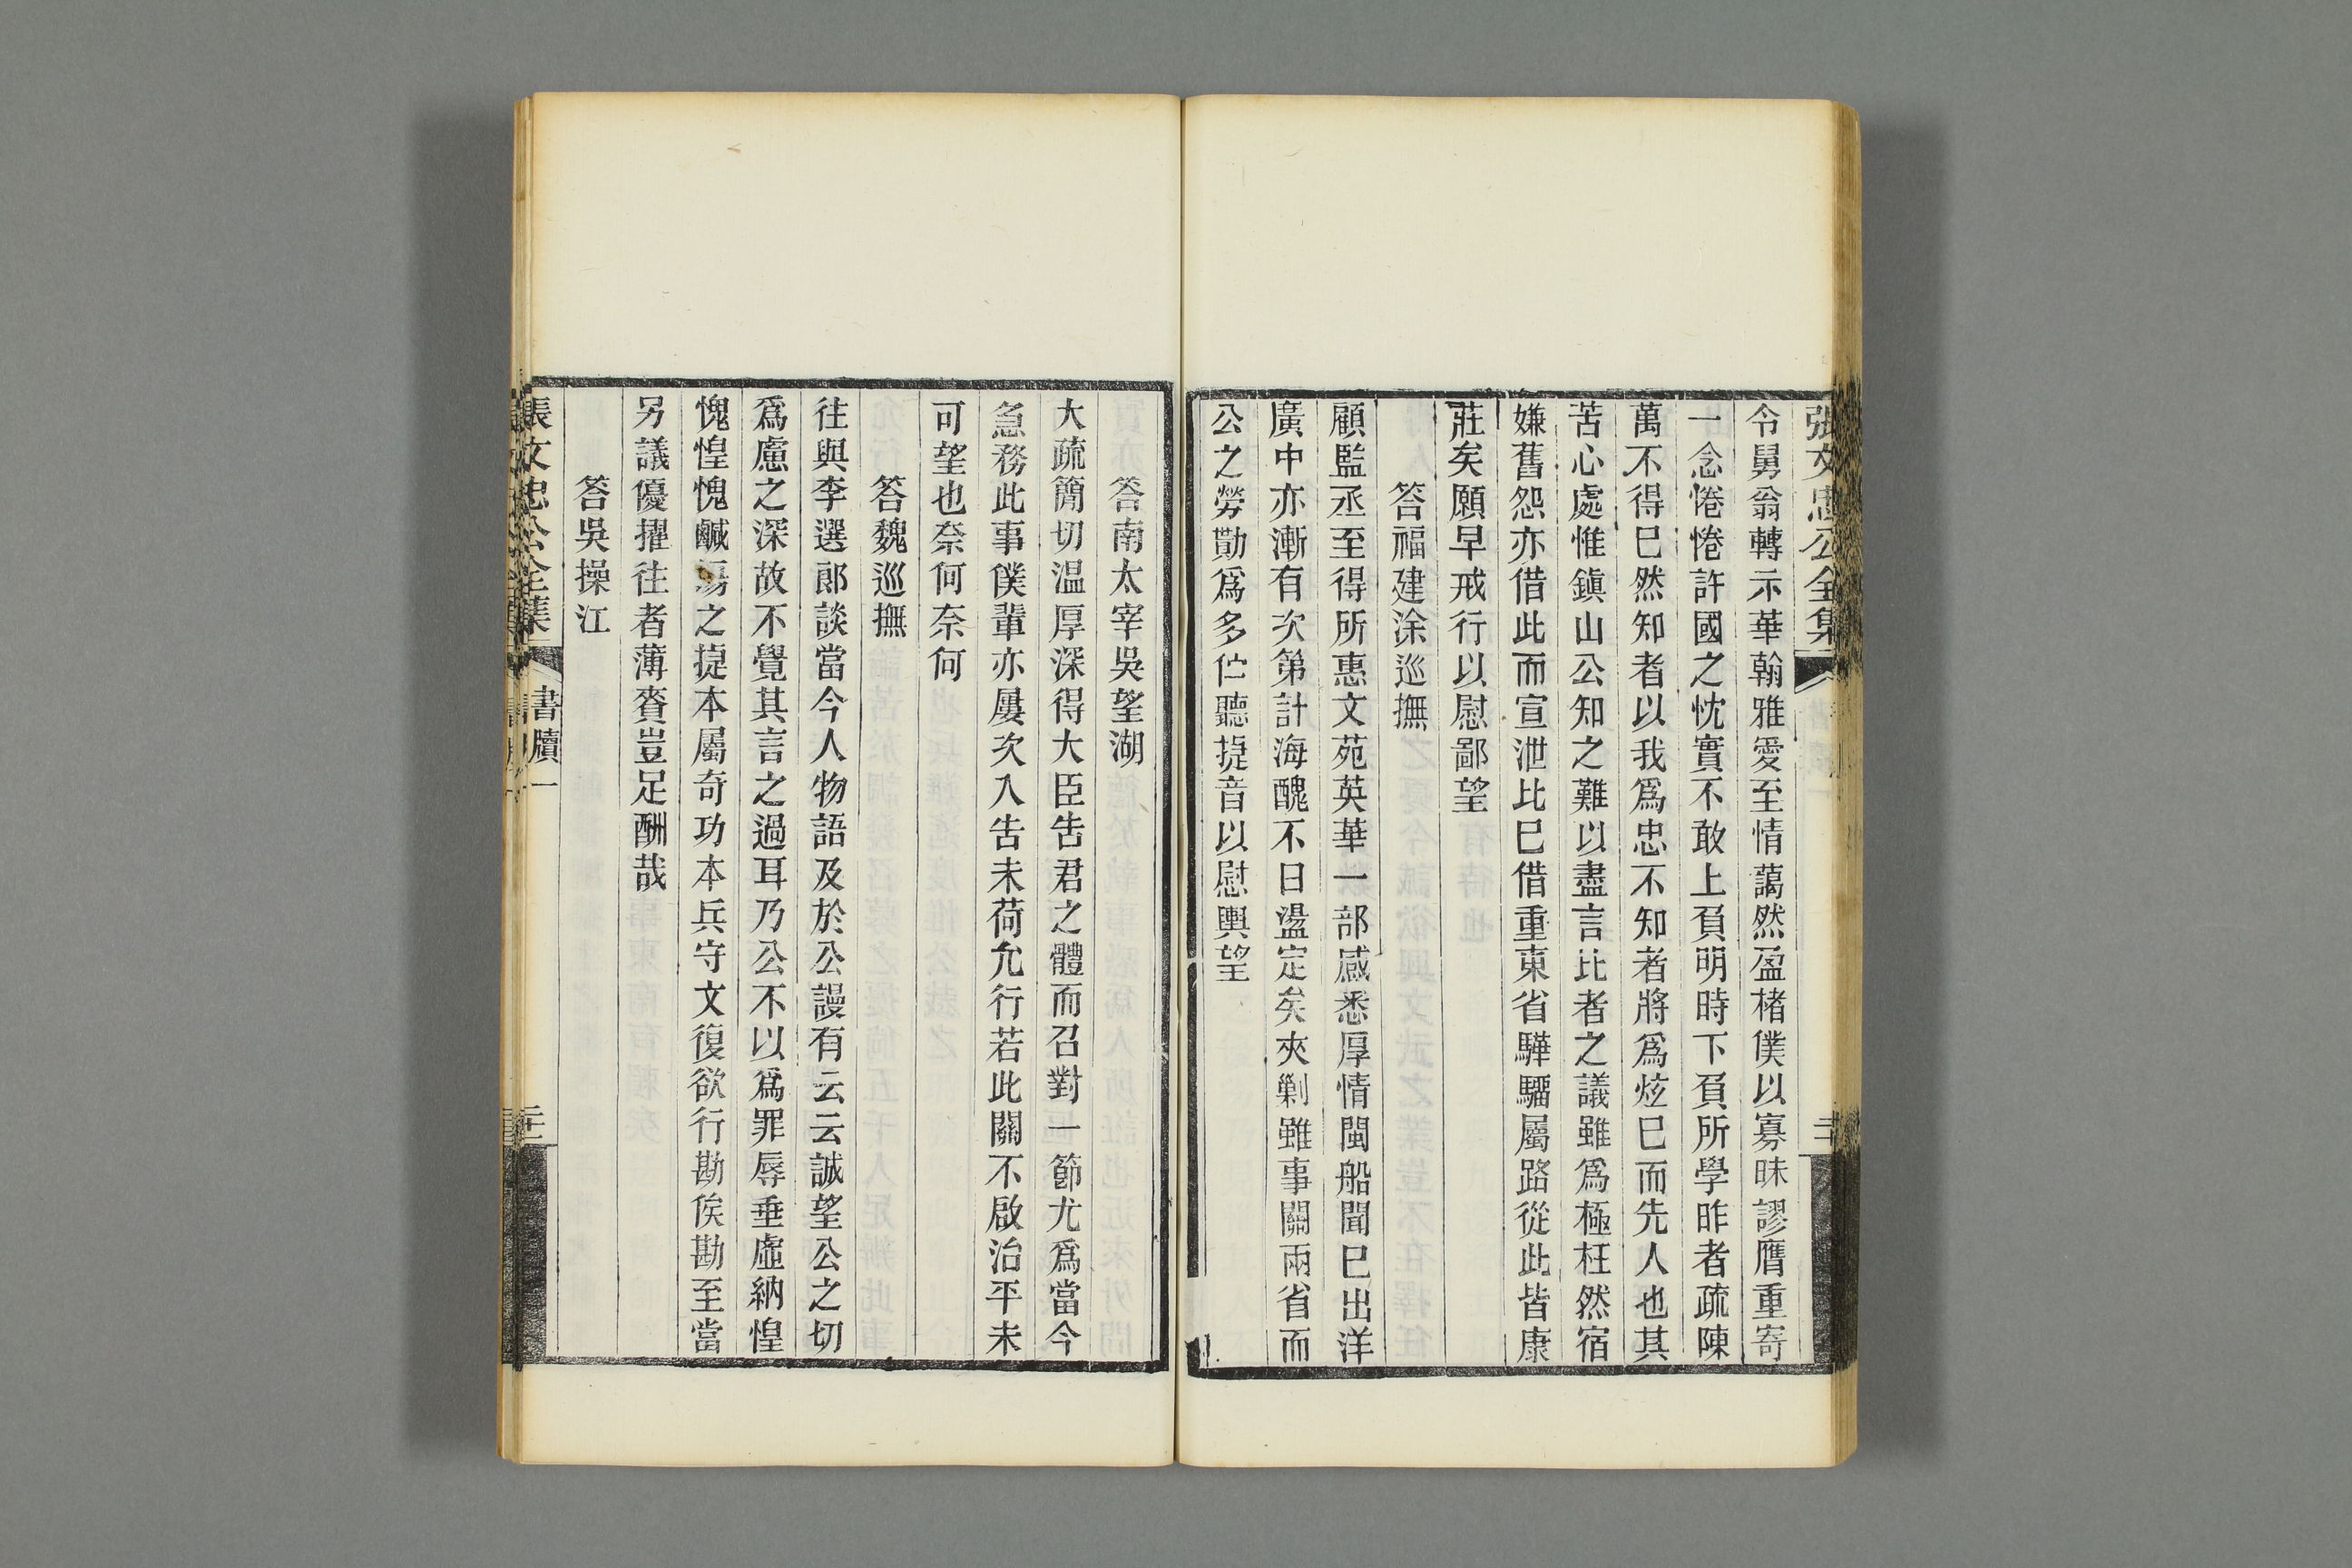 張文忠公全集
令舅翁轉示華翰雅愛至情藹然盈楮僕以寡昧謬膺重寄
一念惓惓許國之忱實不敢上負明時下負所學昨者疏陳
萬不得已然知者以我爲忠不知者將爲炫已而先人也其
苦心處惟鎮山公知之難以盡言比者之議雖爲極枉然宿
嫌舊怨亦借此而宣泄比已借重東省驊騮屬路從此皆康
莊矣願早戒行以慰鄙望
答福建涂巡撫
顧監丞至得所惠文苑英華一部感悉厚情閩船聞已出洋
廣中亦漸有次第計海醜不日盪定矣夾剿雖事關兩省而
公之勞勩爲多伫聽捷音以慰輿望
答南太宰吳望湖
大疏簡切温厚深得大臣告君之體而召對一節尤爲當今
急務此事僕輩亦屢次入告未荷允行若此關不啟治平未
可望也奈何奈何
答魏巡撫
往與李選郎談當今人物語及於公謾有云云誠望公之切
爲慮之深故不覺其言之過耳乃公不以爲罪辱垂虛納惶
愧惶愧鹹場之捷本屬奇功本兵守文復欲行勘俟勘至當
另議優擢往者薄賚豈足酬哉
答吳操江
張文忠公全集
書牘一